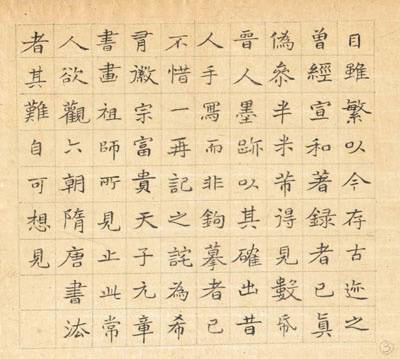 目雖繁以今存古迹之
曾經宣和著錄者已真
偽參半米芾得見數帋
晉人墨跡以其確出昔
人手寫而非鉤摹者已
不惜一再記之詫為希
有徽宗富貴天子元章
書畫祖師所見止此常
人欲觀六朝隋唐書法
者其難自可想見
③